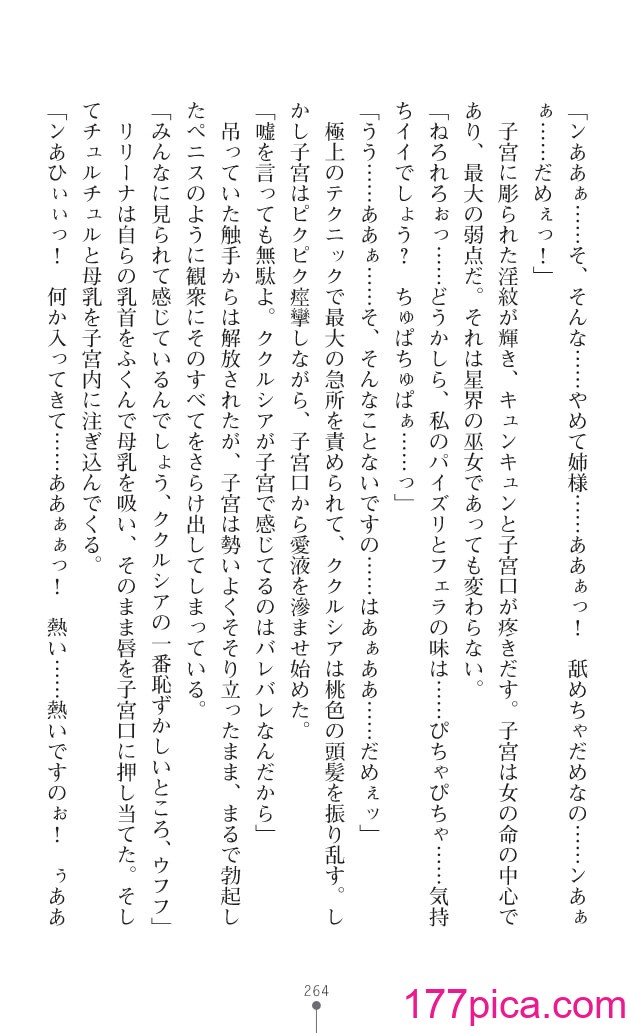 「ンああぁ……そ、そんな……やめて姉様……ああぁっ！　舐めちゃだめなの……ンあぁ
ぁ……だめぇっ！」
子宮に彫られた淫紋が輝き、キュンキュンと子宮口が疼きだす。子宮は女の命の中心で
あり、最大の弱点だ。それは星界の巫女であっても変わらない。
「ねろれろぉっ……どうかしら、私のパイズリとフェラの味は……ぴちゃぴちゃ……気持
ちイイでしょう？　ちゅぱちゅぱぁ……っ」
「うう……ああぁ……そ、そんなことないですの……はあぁああ……だめぇッ」
極上のテクニックで最大の急所を責められて、ククルシアは桃色の頭髪を振り乱す。し
かし子宮はピクピク痙攣しながら、子宮口から愛液を滲ませ始めた。
「嘘を言っても無駄よ。ククルシアが子宮で感じてるのはバレバレなんだから」
吊っていた触手からは解放されたが、子宮は勢いよくそそり立ったまま、まるで勃起し
たペニスのように観衆にそのすべてをさらけ出してしまっている。
「みんなに見られて感じているんでしょう、ククルシアの一番恥ずかしいところ、ウフフ」
リリーナは自らの乳首をふくんで母乳を吸い、そのまま唇を子宮口に押し当てた。そし
てチュルチュルと母乳を子宮内に注ぎ込んでくる。
「ンあひぃぃっ！　何か入ってきて……ああぁぁっ！　熱い……熱いですのぉ！　ぅああ
264
177pica.com